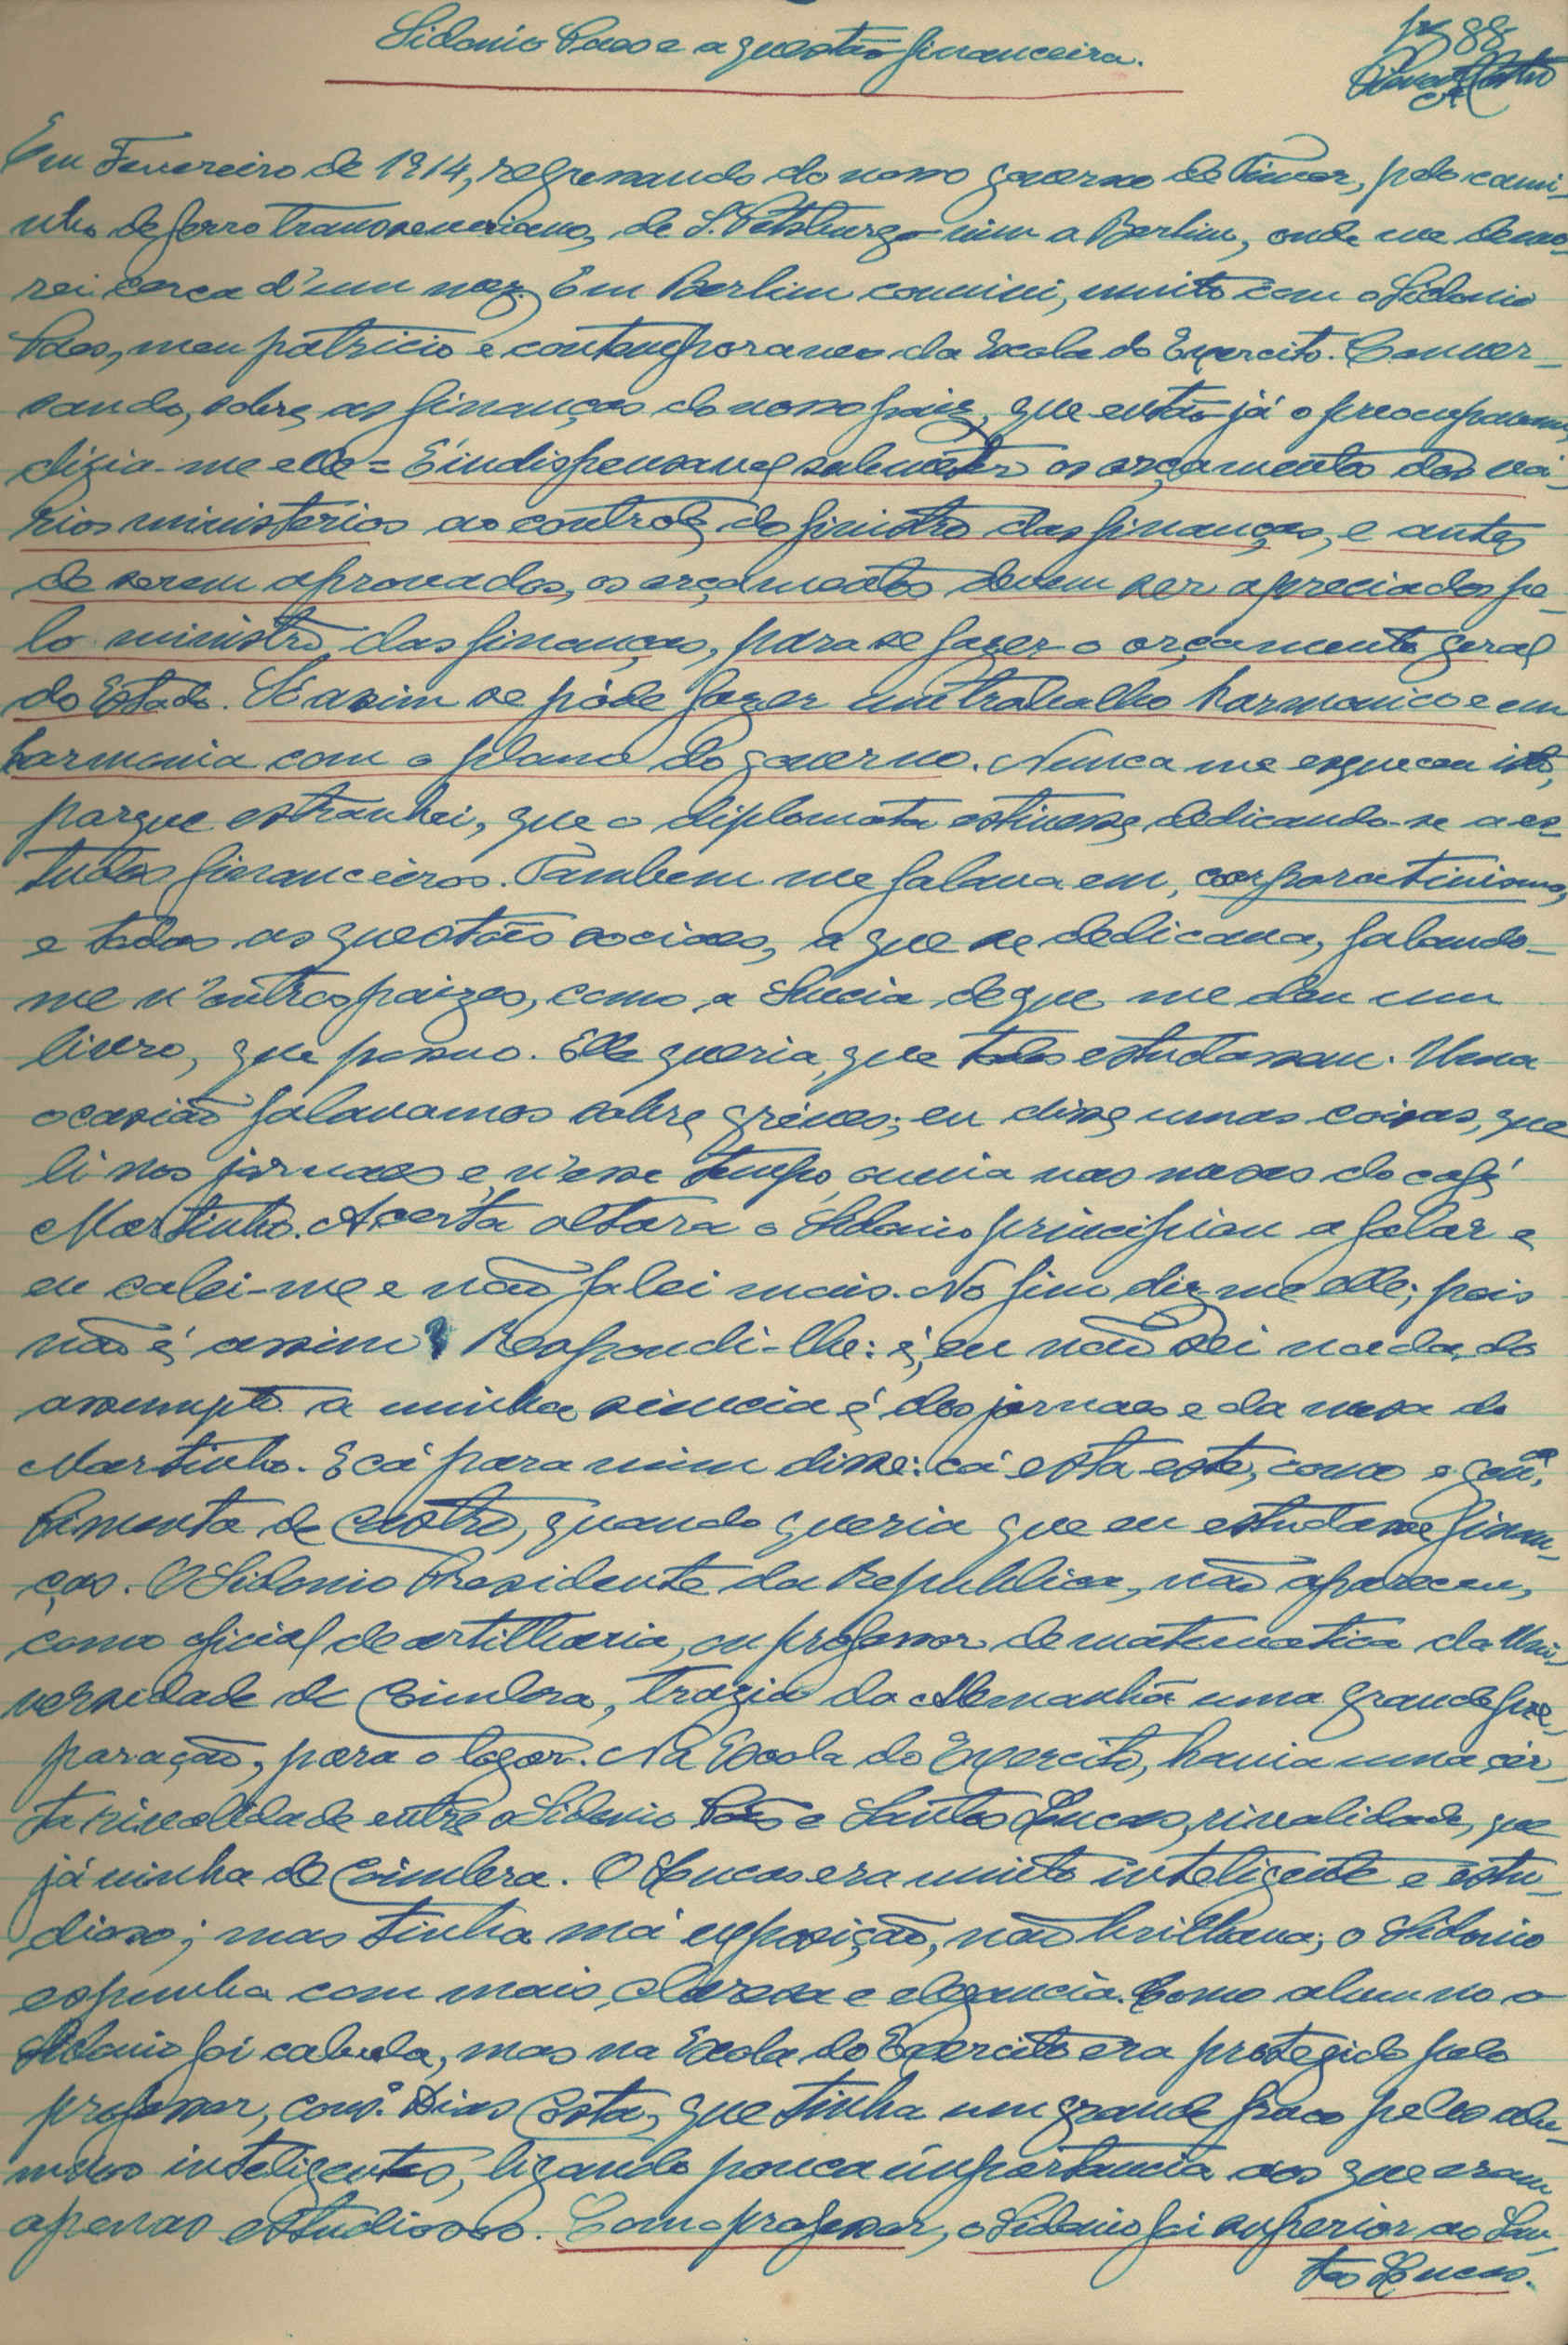 Sidonio Paes e a questão financeira.
fs 88
Em Fevereiro de 1914, regressando do nosso governo de Timor, pelo cami-
nho de ferro transseveriano, de S. Petsburgo vim a Berlim, onde me demo-
rei cerca d'um mez. Em Berlim convivi, muito com o Sidonio
Paes, meu patricio e contemporaneo da Escola do Exercito. Conver-
sando, sobre as finanças do nosso paiz, que então já o preocupavam,
dizia-me elle = É indispensavel submeter os orçamentos dos vá-
rios ministerios ao controle do ministro das finanças, e antes
de serem aprovados, os orçamentos devem ser apreciados pe-
lo ministro das finanças, para se fazer o orçamento geral
do Estado. Só assim se póde fazer um trabalho harmonico e em
harmonia com o plano do governo. Nunca me esqueceu isto,
porque estranhei, que o diplomata estivesse dedicando-se a es-
tudos financeiros. Tambem me falava em, corporativismo,
e todas as questões sociaes, a que se dedicava, falando-
me n'outros paizes, como a Suecia, de que me deu um
livro, que possuo. Elle queria, que todos estudassem. Uma
ocasião falavamos sobre gréves; eu disse umas coisas, que
li nos jornaes e n'esse tempo, ouvia nas mesas do café
Martinho. A certa altura o Sidonio principiou a falar e
eu calei-me e não falei mais. No fim diz me elle; pois
não é assim? Respondi-lhe: é, eu não sei nada, do
assumpto a minha siencia é dos jornaes e da mesa do
Martinho. E cá para mim disse: cá está este, como o gen.al
Pimenta de Castro, quando queria que eu estudasse finan-
ças. O Sidonio Presidente da Republica, não apareceu,
como oficial de artilharia, ou professor de matematica da Uni-
versidade de Coimbra, trazia da Alemanhã uma grande pre-
paração, para o logar. Na Escola do Exercito, havia uma cer-
ta rivalidade entre o Sidonio Paes e Santos Lucas, rivalidade, que
já vinha de Coimbra. O Lucas era muito inteligente e estu-
dioso; mas tinha má exposição, não brilhava; o Sidonio
espunha com mais, claresa e elegancia. Como alumno o
Sidonio foi cabula, mas na Escola do Exercito era protegido pelo
professor, cons.º Dias Costa, que tinha um grande fraco pelos alu-
mnos inteligentes, ligando pouca importancia aos que eram
apenas estudiosos. Como professor, o Sidonio foi superior ao San-
tos Lucas.